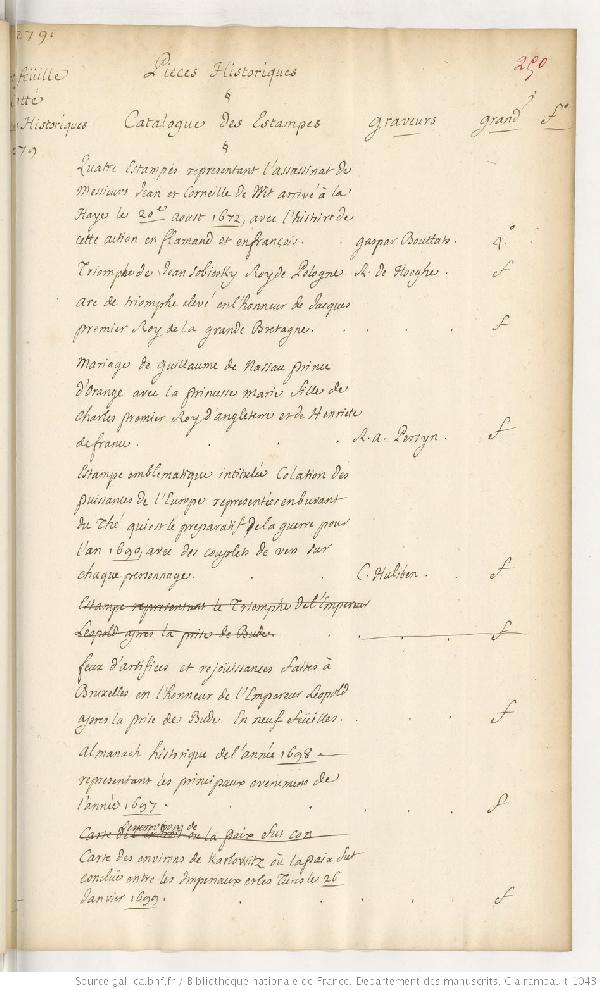 279.
feuille
Pieces Historiques
290
cotté
§
Historiques
Catalogue Des Estampes
graveurs
grand.r
f.o
279
§
Quatre Estampes representant l'assassinat de
Messieurs Jean et Corneille de Wit arrivé à la
Haye le 20.e aoust 1672, avec l'histoire de
cette action en flamand et en françois. gaspar Bouttats. 4.o
Triomphe de Jean Sobiesky Roy de Pologne R. de Hooghe. f
arc de triomphe elevé en l'honneur de Jacques
premier Roy de la grande Bretagne. . . . f
Mariage de Guillaume de Nassau prince
d'Orange avec la princesse marie fille de
Charles premier Roy D'angleterre et de Henriete
de france. . . R. a. Persyn. f
Estampe emblematique intitulée Colation des
puissances de l'Europe representées en buvant
du Thé qui est le preparatif de la guerre pour
l'an 1690, avec des couplets de vers sur
chaque personnage. . . f
Estampe representant le Triomphe de l'Empereur
Leopold apres la prise de Bude. . . f
feux d'artifices et rejouissances faites à
Bruxelles en l'honneur de l'Empereur Leopold
apres la prise de Bude. En neuf feuilles. . . f
Almanach historique de l'année 1698
representant les principaux evenemens de
l'année 1697. . . . f
Carte des environs de ou la paix fut con
Carte des environs de Karlowitz où la paix fut
conclue entre les Imperiaux et les Turcs le 26
Janvier 1699. . . . f
Source gallica.bnf.fr / Bibliothèque nationale de France. Département des manuscrits. Clairambault 1048